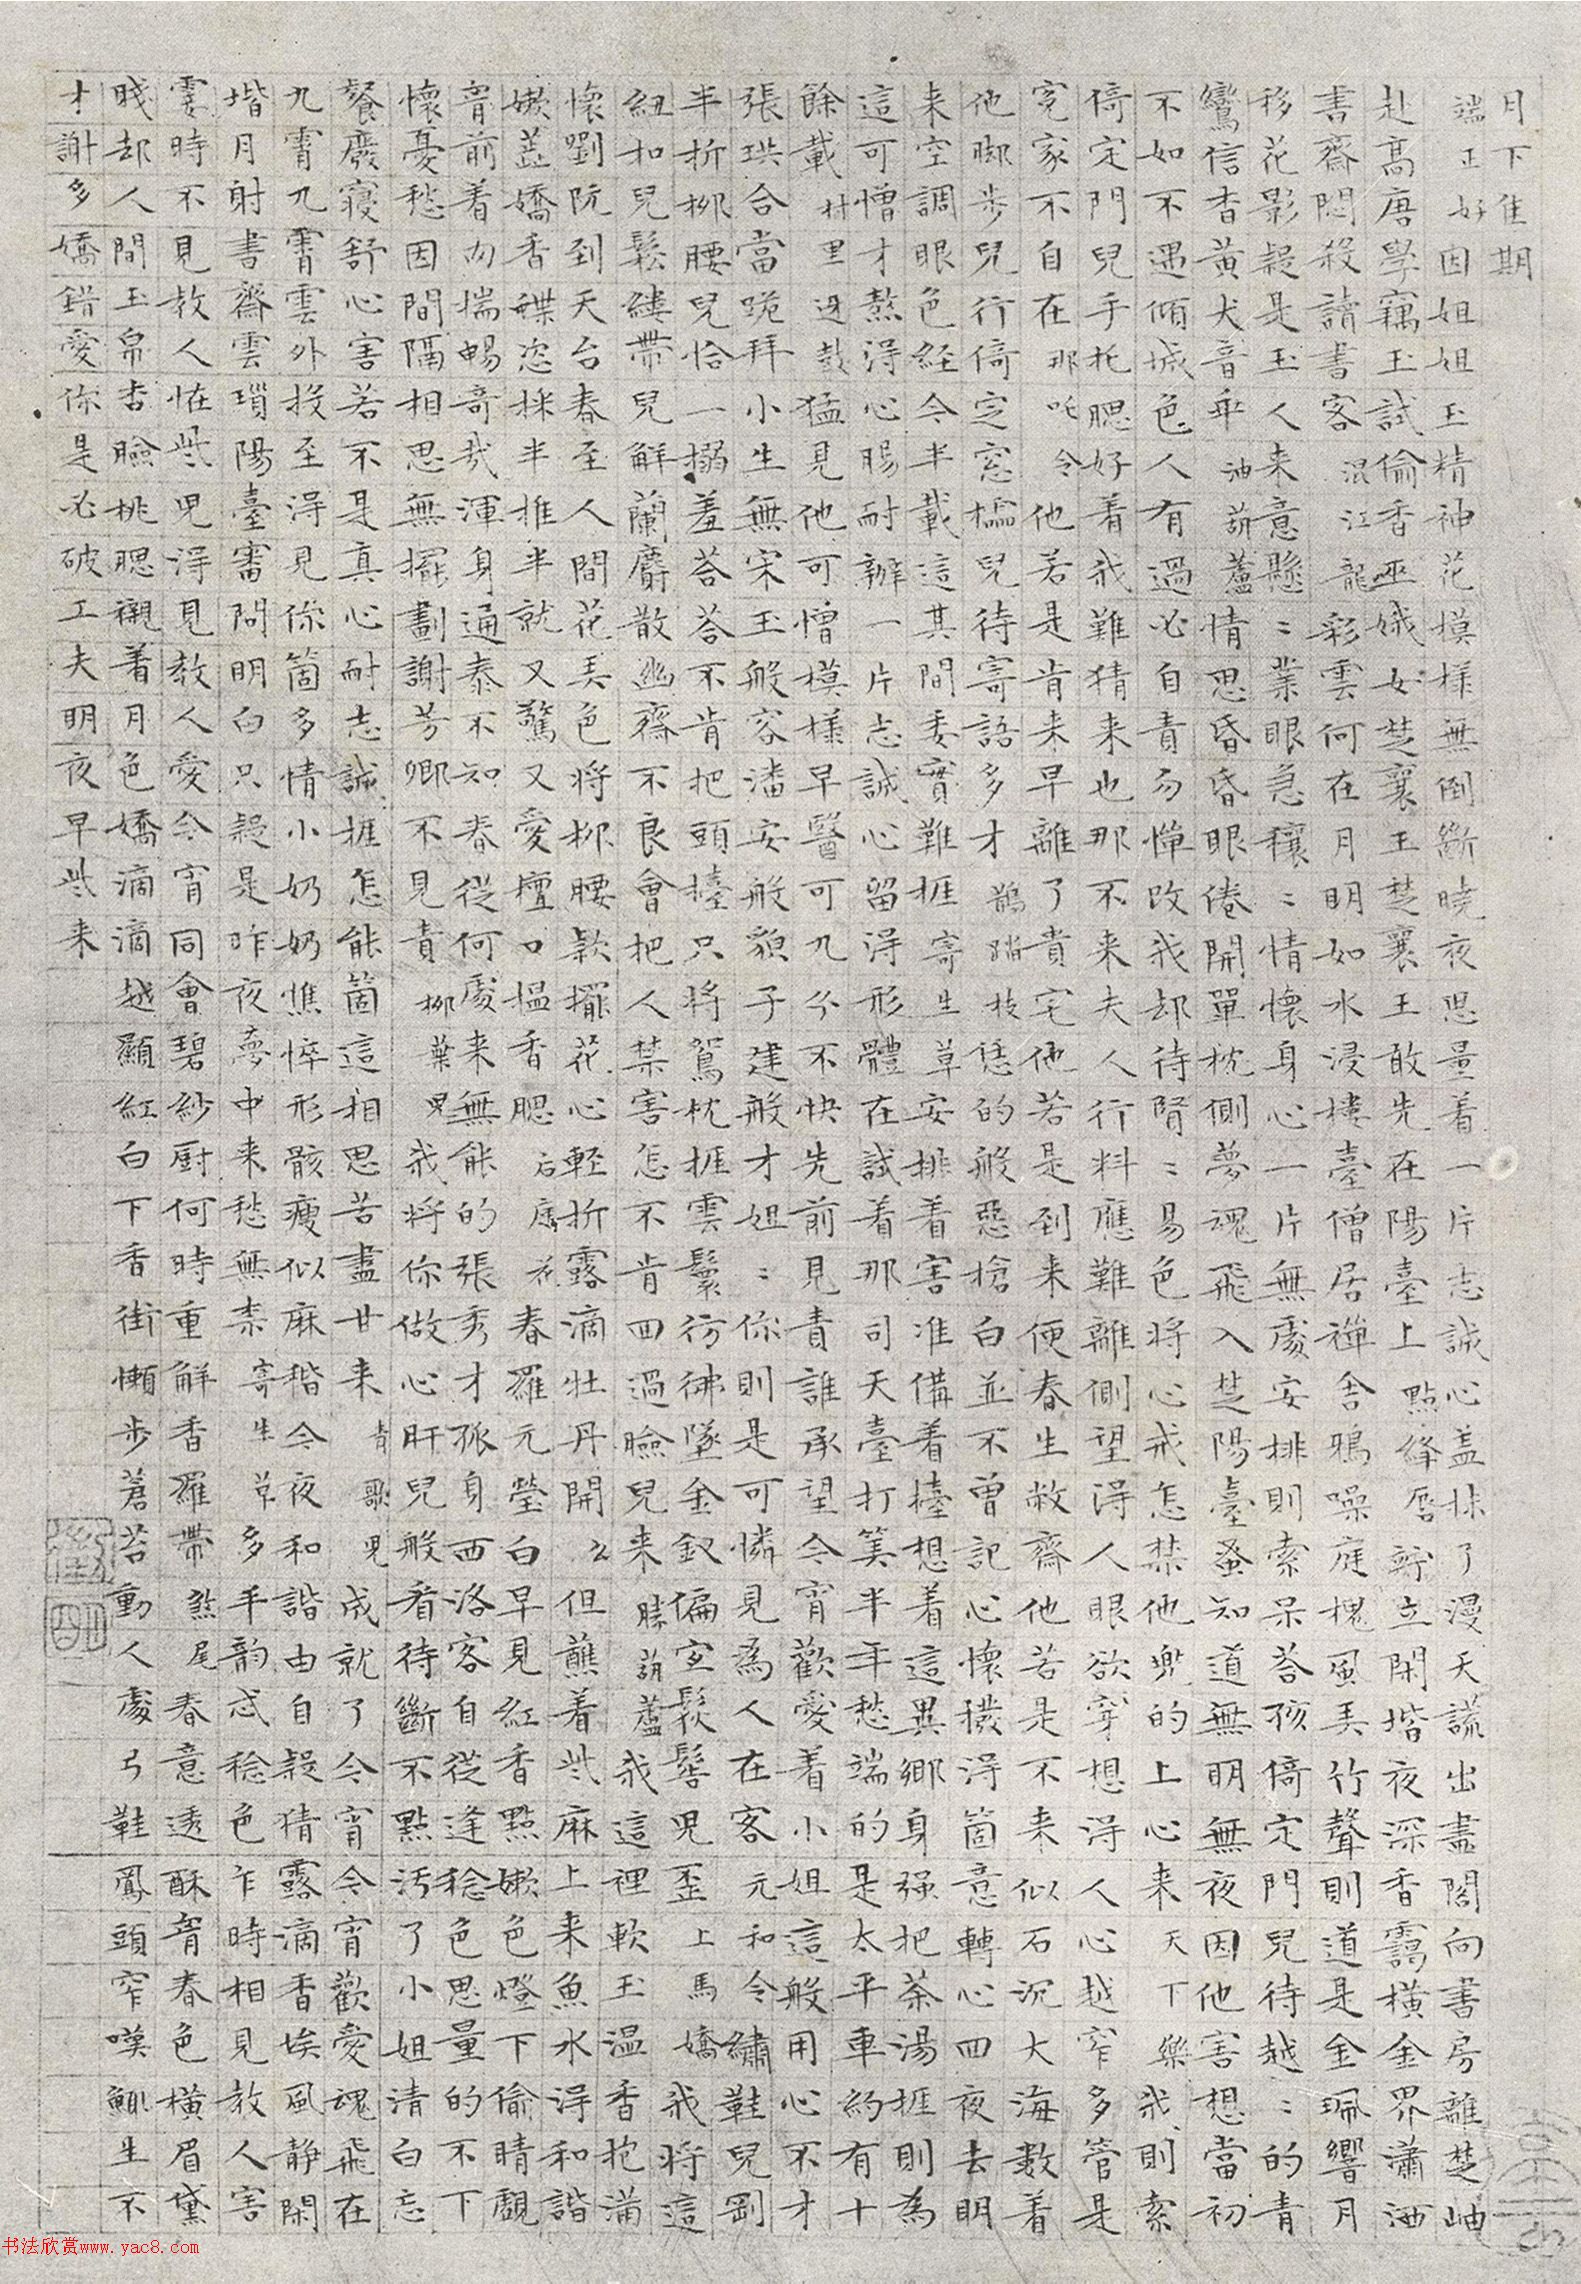 月下隹期
端正好因姐姐玉精神花模樣無倒斷曉夜思量着一片志誠心盖抹了漫天謊出畫閣向書房離楚岫
赴髙唐學竊玉試偷香巫娥女楚襄王楚襄王敢先在陽臺上點絳唇竚立閑堦夜深香靄橫金界瀟洒
書齋悶殺讀書客混江龍彩雲何在月明如水浸樓臺僧居禪舍鴉噪庭槐風弄竹聲則道是金珮響月
移花影疑是玉人来意懸〻業眼急穰〻情懷身心一片無處安排則索呆荅孩倚定門兒待越〻的青
鸞信杳黃犬音乖油葫蘆情思昏昏眼倦開單枕側夢魂飛入楚陽臺蚤知道無明無夜因他害想當初
不如不遇傾城色人有過必自責勿憚改我却待賢〻易色將心戒怎禁他兜的上心来天下樂我則索
倚定門兒手托腮好着我難猜来也那不来夫人行料應難離側望得人眼欲穿想得人心越窄多管是
寃家不自在那吒令他若是肯来早離了貴宅他若是到来便春生敝齋他若是不来似石沉大海數着
他脚步兒行倚定窓櫺兒待寄語多才鵲踏枝恁的般惡搶白並不曾記心懷得箇意轉心四夜去明
来空調眼色經今半載這其間委實難捱寄生草安排着害准備着擡想着這異鄉身强把茶湯捱則為
這可憎才熬得心腸耐辦一片志誠心留得形體在試着那司天臺打筭半年愁端的是太平車約有十
餘載村里迓鼓猛見他可憎模樣早醫可九分不快先前見責誰承望今宵歡愛着小姐這般用心不才
張珙合當跪拜小生無宋玉般容潘安般貌子建般才姐〻你則是可憐見為人在客元和令繡鞋兒剛
半折柳腰兒恰一搦羞荅荅不肯把頭擡只將鴛枕捱雲鬟彷彿墜金釵偏宜鬏髻兒歪上馬嬌我將這
紐扣兒鬆縷帶兒解蘭麝散幽齋不良會把人禁害怎不肯回過臉兒来勝葫蘆我這裡軟玉温香抱滿
懷劉阮到天台春至人間花弄色將柳腰款擺花心輕折露滴牡丹開么但蘸着些麻上来魚水得和諧
嫩蕋嬌香蝶恣採半推半就又驚又愛檀口揾香腮后庭花春羅元瑩白早見紅香點嫩色燈下偷睛覷
胷前着肉揣暢奇哉渾身通泰不知春從何處来無能的張秀才孤身西洛客自從逢稔色思量的不下
懷憂愁因間隔相思無擺劃謝芳卿不見責柳葉兒我將你做心肝兒般看待斷不點污了小姐清白忘
餐廢寢舒心害若不是真心耐志誠捱怎能箇這相思苦盡甘来青歌兒成就了今宵今宵歡愛魂飛在
九霄九霄雲外投至得見你箇多情小奶奶憔悴形骸瘦似麻稭今夜和諧由自疑猜露滴香埃風静閑
堦月射書齋雲瑣陽臺審問明白只疑是昨夜夢中来愁無柰寄生草多丰韻忒稔色乍時相見教人害
霎時不見教人恠些兒得見教人愛今宵同會碧紗厨何時重解香羅帶煞尾春意透酥胷春色橫眉黛
賤却人間玉帛杏臉桃腮襯着月色嬌滴滴越顯紅白下香街懶步蒼苔動人處弓鞋鳳頭窄嘆鯫生不
才謝多嬌錯愛你是必破工夫明夜早些来
书法欣赏www.yac8.com